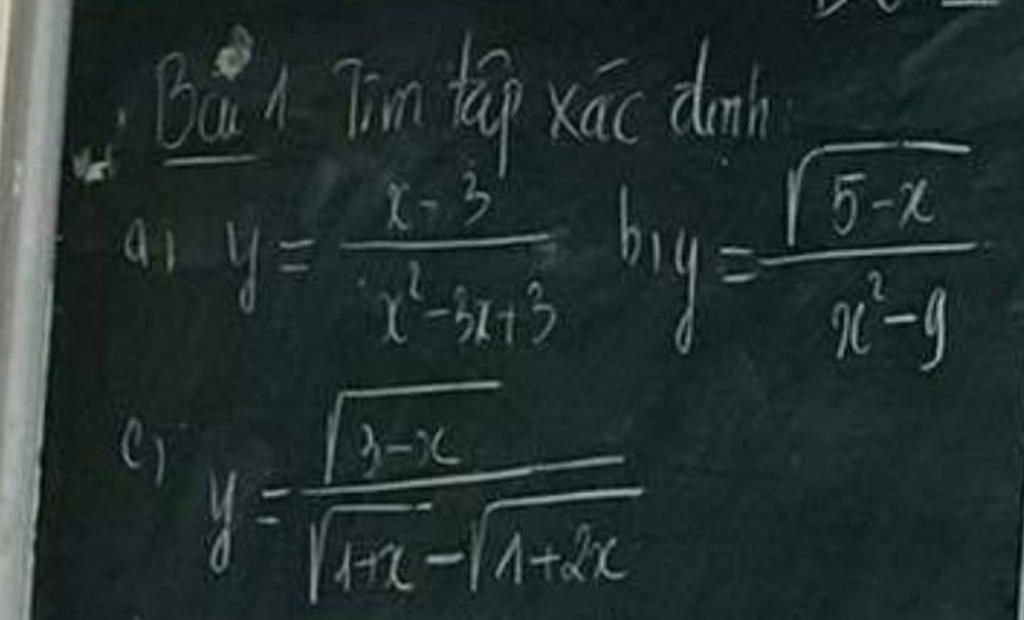 Bài 1 Tìm tập xác định:
a, y = \frac{x-3}{x^2-3x+3} b, y = \frac{\sqrt{5-x}}{x^2-9}
c, y = \frac{\sqrt{3-x}}{\sqrt{1+x}-\sqrt{1+2x}}